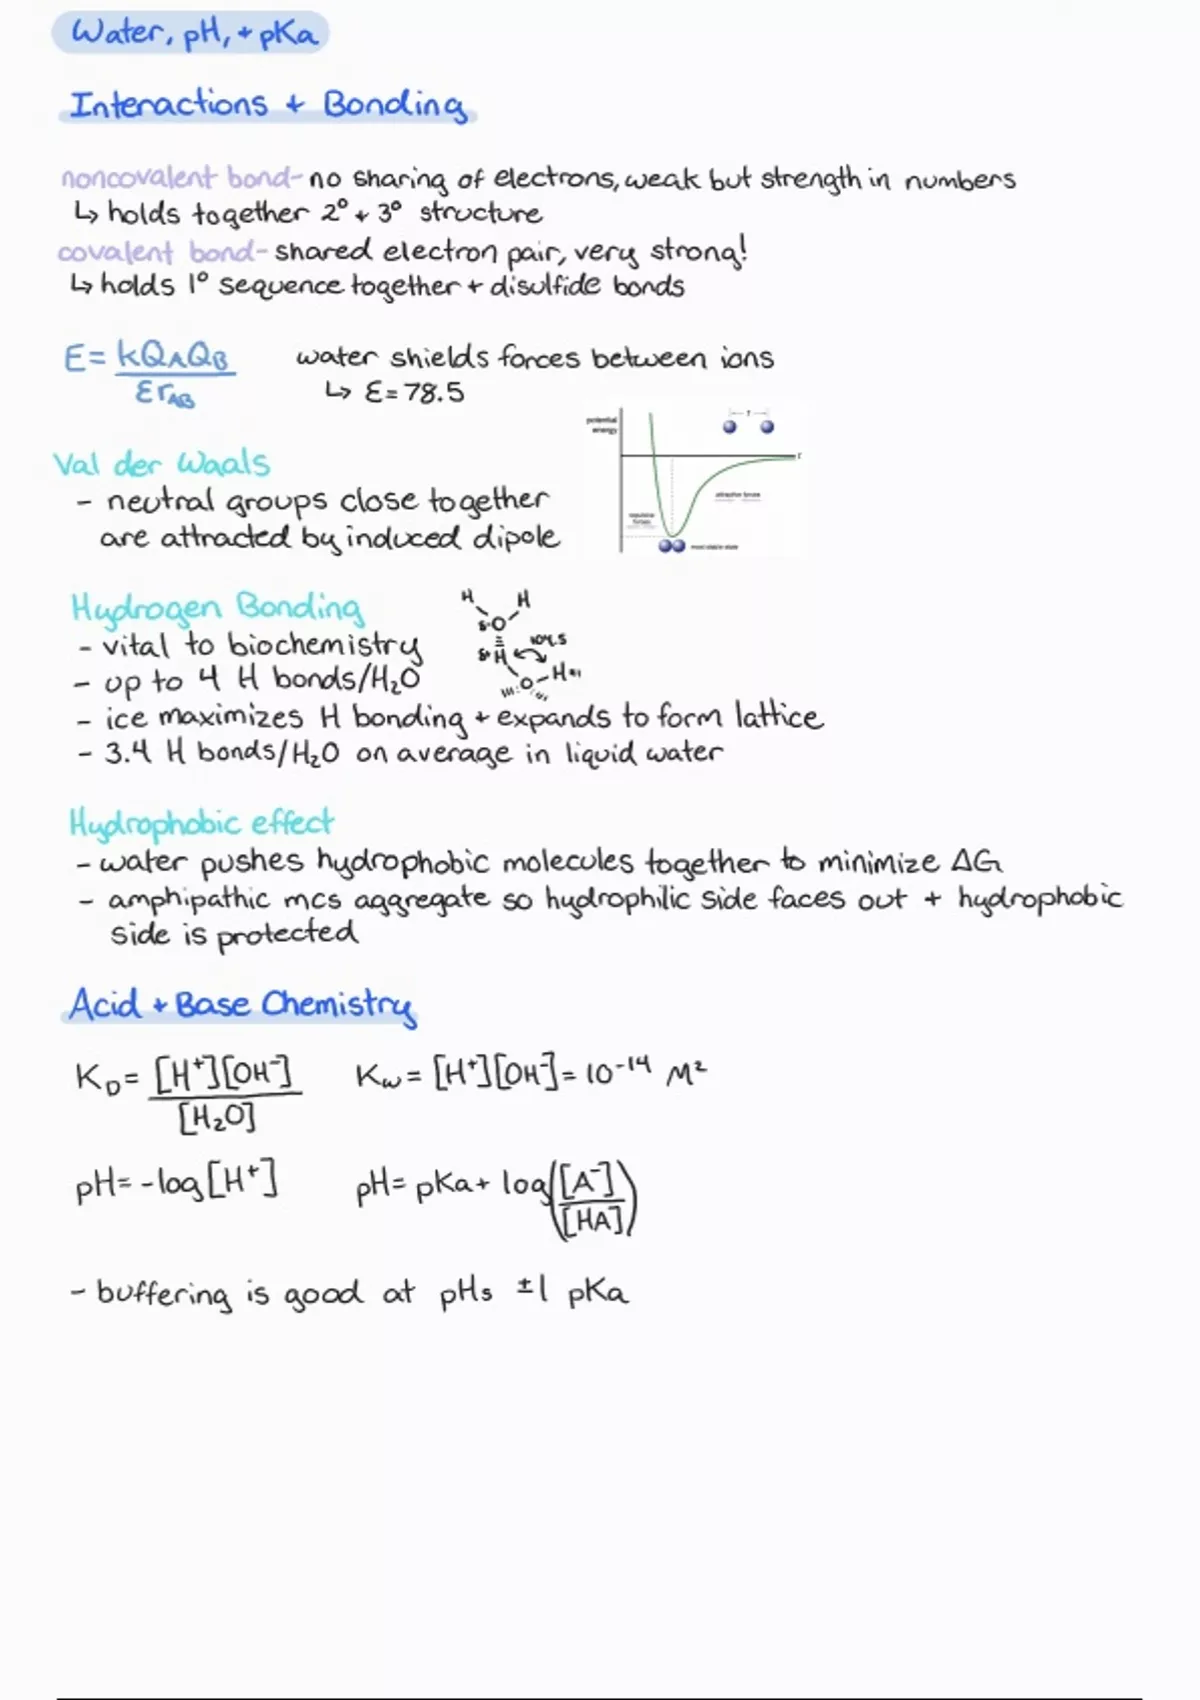 Water, pH, + pKa
Interactions + Bonding
noncovalent bond- no sharing of electrons, weak but strength in numbers
↳ holds together 2° + 3° structure
covalent bond- shared electron pair, very strong!
↳ holds 1° sequence together + disulfide bonds
E = kQAQB / ƐrAB
water shields forces between ions
↳ Ɛ = 78.5
potential energy
r
r
attractive forces
repulsive forces
most stable state
Val der Waals
- neutral groups close together
are attracted by induced dipole
Hydrogen Bonding
- vital to biochemistry
- up to 4 H bonds/H₂O
- ice maximizes H bonding + expands to form lattice
- 3.4 H bonds/H₂O on average in liquid water
H H
δ-O
δ+H 104.5
O-H
Hydrophobic effect
- water pushes hydrophobic molecules together to minimize ΔG
- amphipathic mcs aggregate so hydrophilic side faces out + hydrophobic
side is protected
Acid + Base Chemistry
KD = [H⁺][OH⁻] / [H₂O]
Kw = [H⁺][OH⁻] = 10⁻¹⁴ M²
pH = -log[H⁺]
pH = pKa + log([A⁻]/[HA])
- buffering is good at pHs ±1 pKa